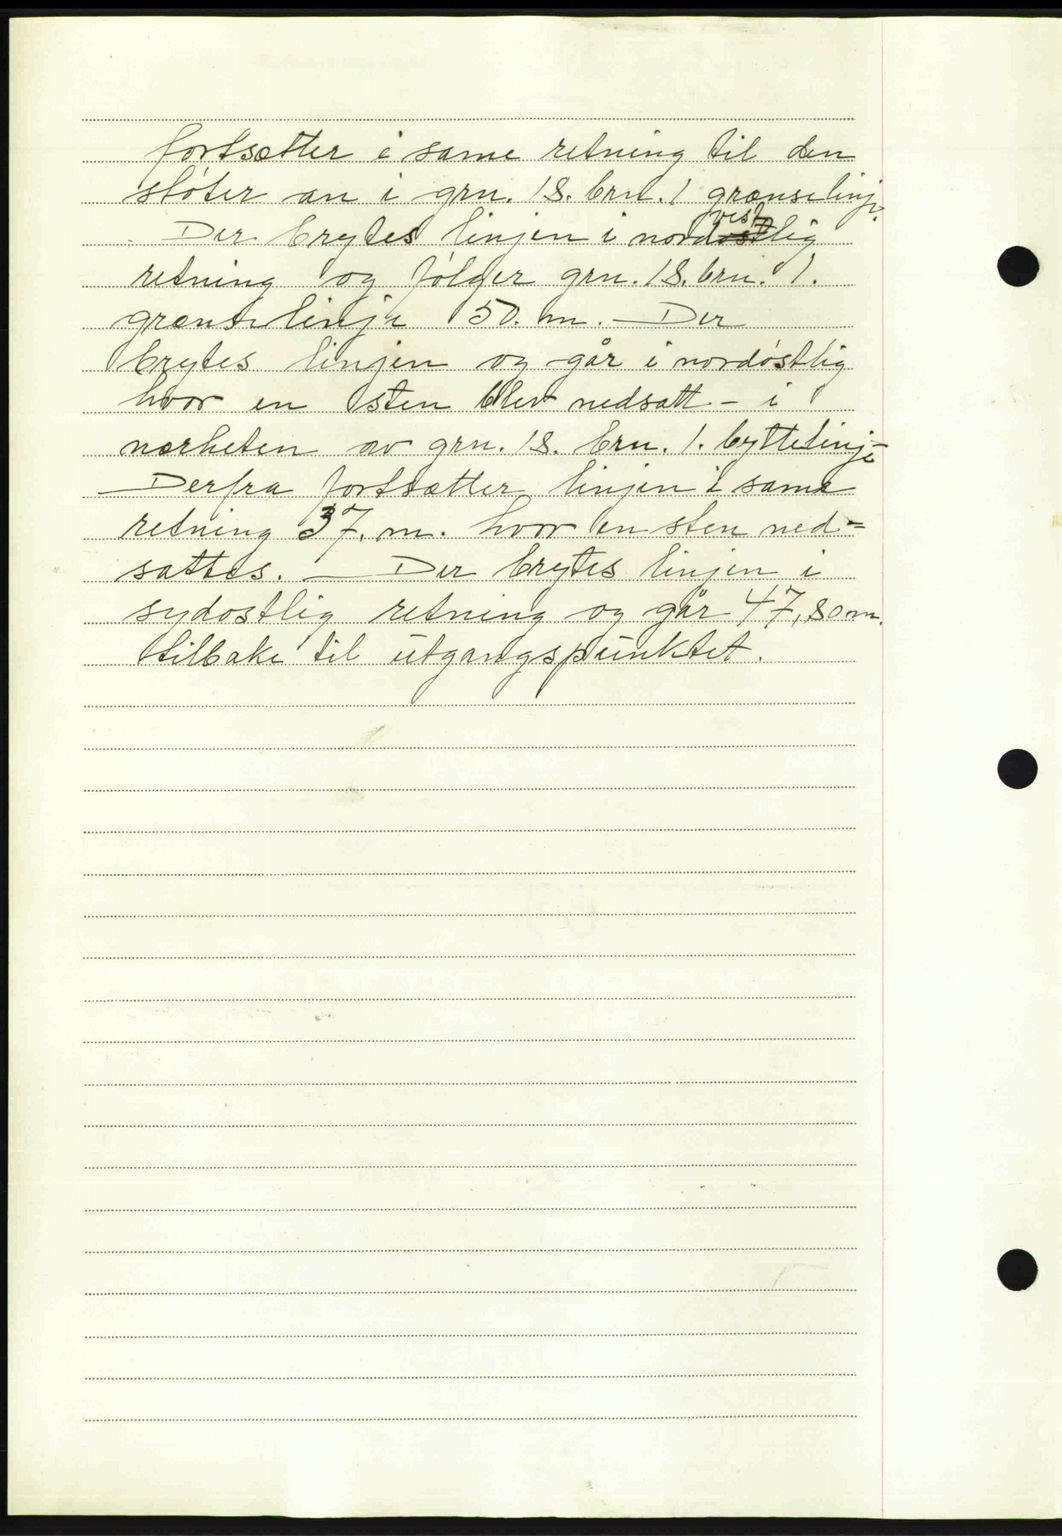 fortsætter i same retning til den
støter an i grn. 18. brn. 1 grænselinje.
Der brytes linjen i nordvestlig
retning og følger grn. 18. brn. 1.
grænselinje 50. m. — Der
brytes linjen og går i nordøstlig
hvor en sten blev nedsatt – i
nærheten av grn. 18. brn. 1. byttelinje
— Derfra fortsætter linjen i same
retning 37. m. hvor en sten ned=
sattes. — Der brytes linjen i
sydostlig retning og går 47,80 m.
tilbake til utgangspunktet.